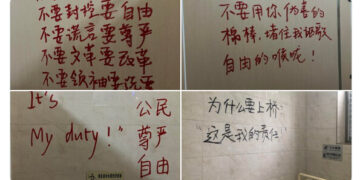 不要封控要自由
不要谎言要尊严
不要文革要改革
不要领袖要选票
不要用你伪善的
棉棒,堵住我歌颂
自由的喉咙!
It's
My duty!"
公民
尊严
自由
为什么要上桥:
"这是我的责任"